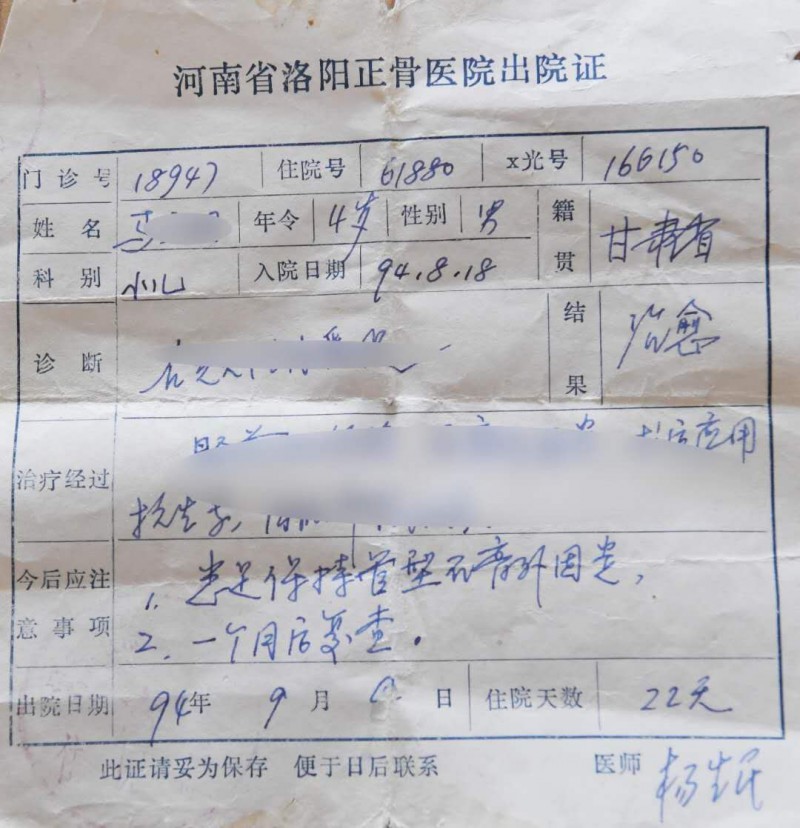 河南省洛阳正骨医院出院证
门诊号 18947 住院号 61880 x光号 166150
姓名 马 年令 4岁 性别 男 籍贯 甘肃省
科别 小儿 入院日期 94.8.18
诊断 结果 治愈
治疗经过 应用
抗生素,
今后应注意事项 1. 患足保持管型石膏外固定,
2. 一个月后复查.
出院日期 94年 9月 日 住院天数 22天
此证请妥为保存 便于日后联系 医师 杨